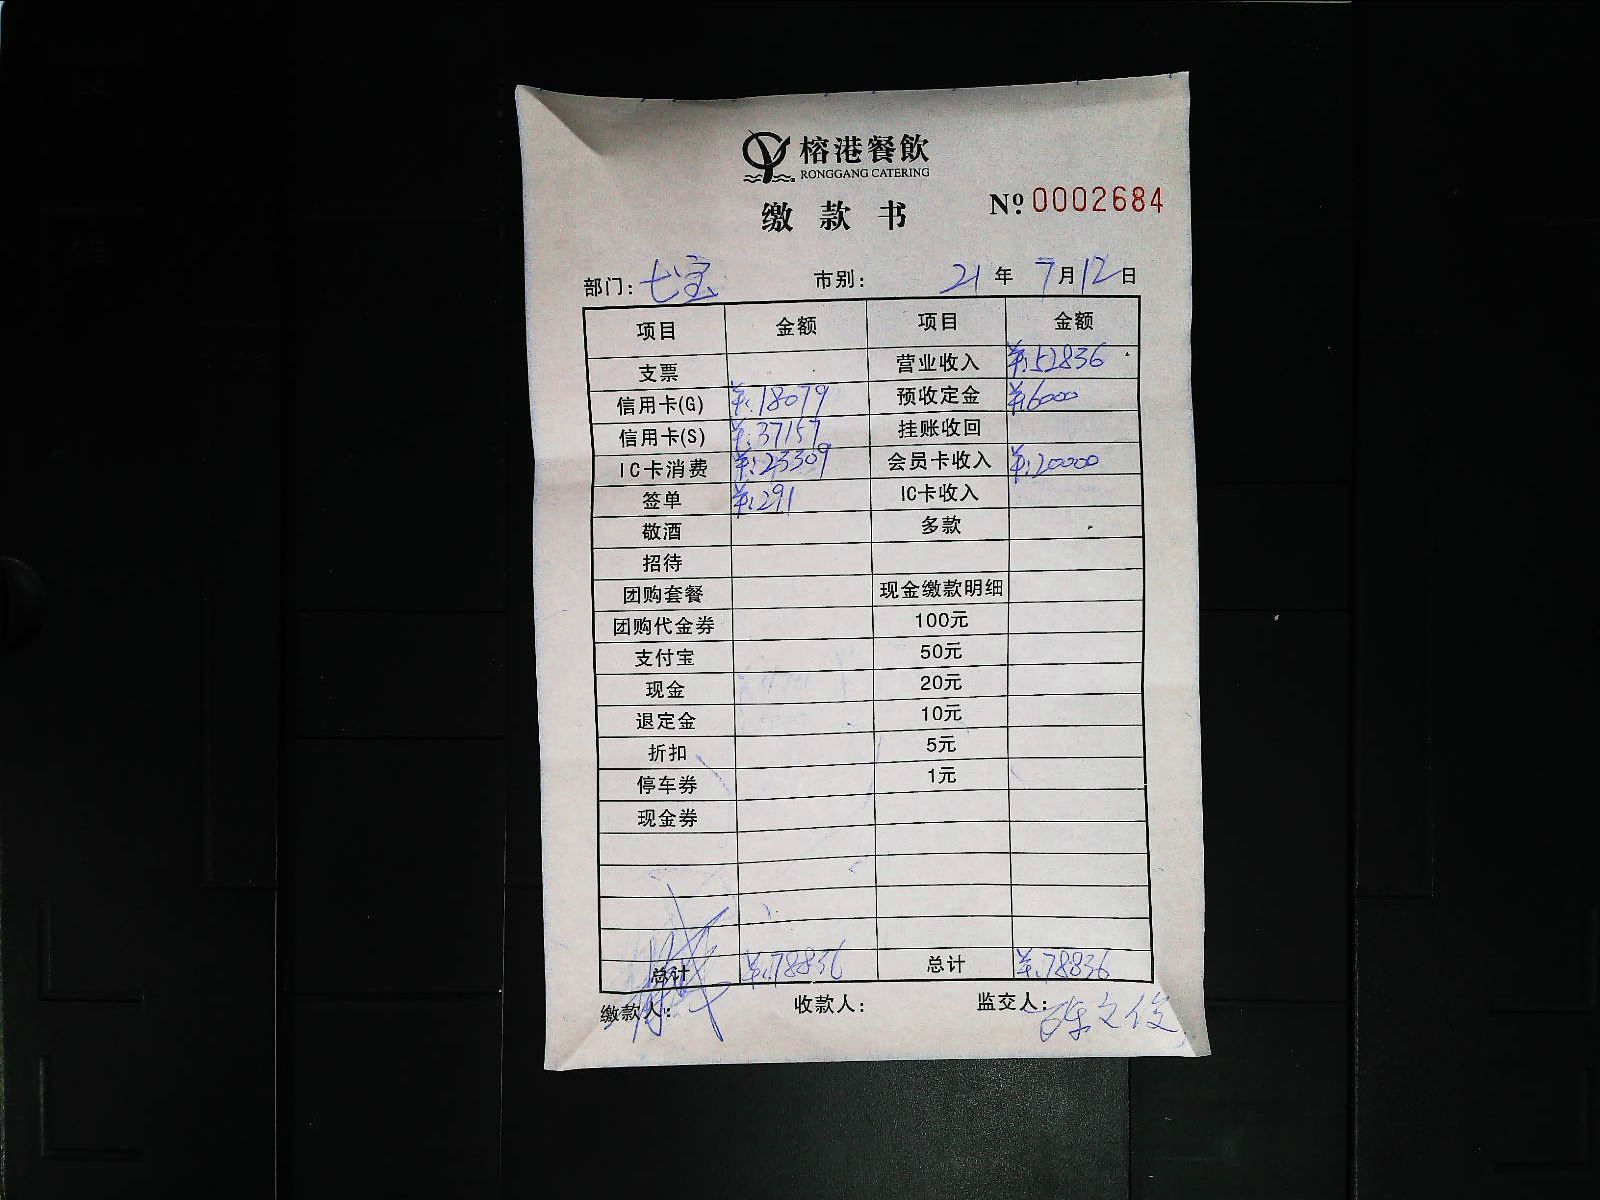 榕港餐飲
RONGGANG CATERING
缴款书 No. 0002684
部门: 七宝 市别: 21 年 7 月 12 日
项目 金额 项目 金额
支票 营业收入 ¥:52836
信用卡(G) ¥:18079 预收定金 ¥:6000
信用卡(S) ¥:37157 挂账收回
IC卡消费 ¥:23309 会员卡收入 ¥:20000
签单 ¥:291 IC卡收入
敬酒 多款
招待
团购套餐 现金缴款明细
团购代金券 100元
支付宝 50元
现金 20元
退定金 10元
折扣 5元
停车券 1元
现金券
总计 ¥:78836 总计 ¥:78836
缴款人: 收款人: 监交人: 陈文俊